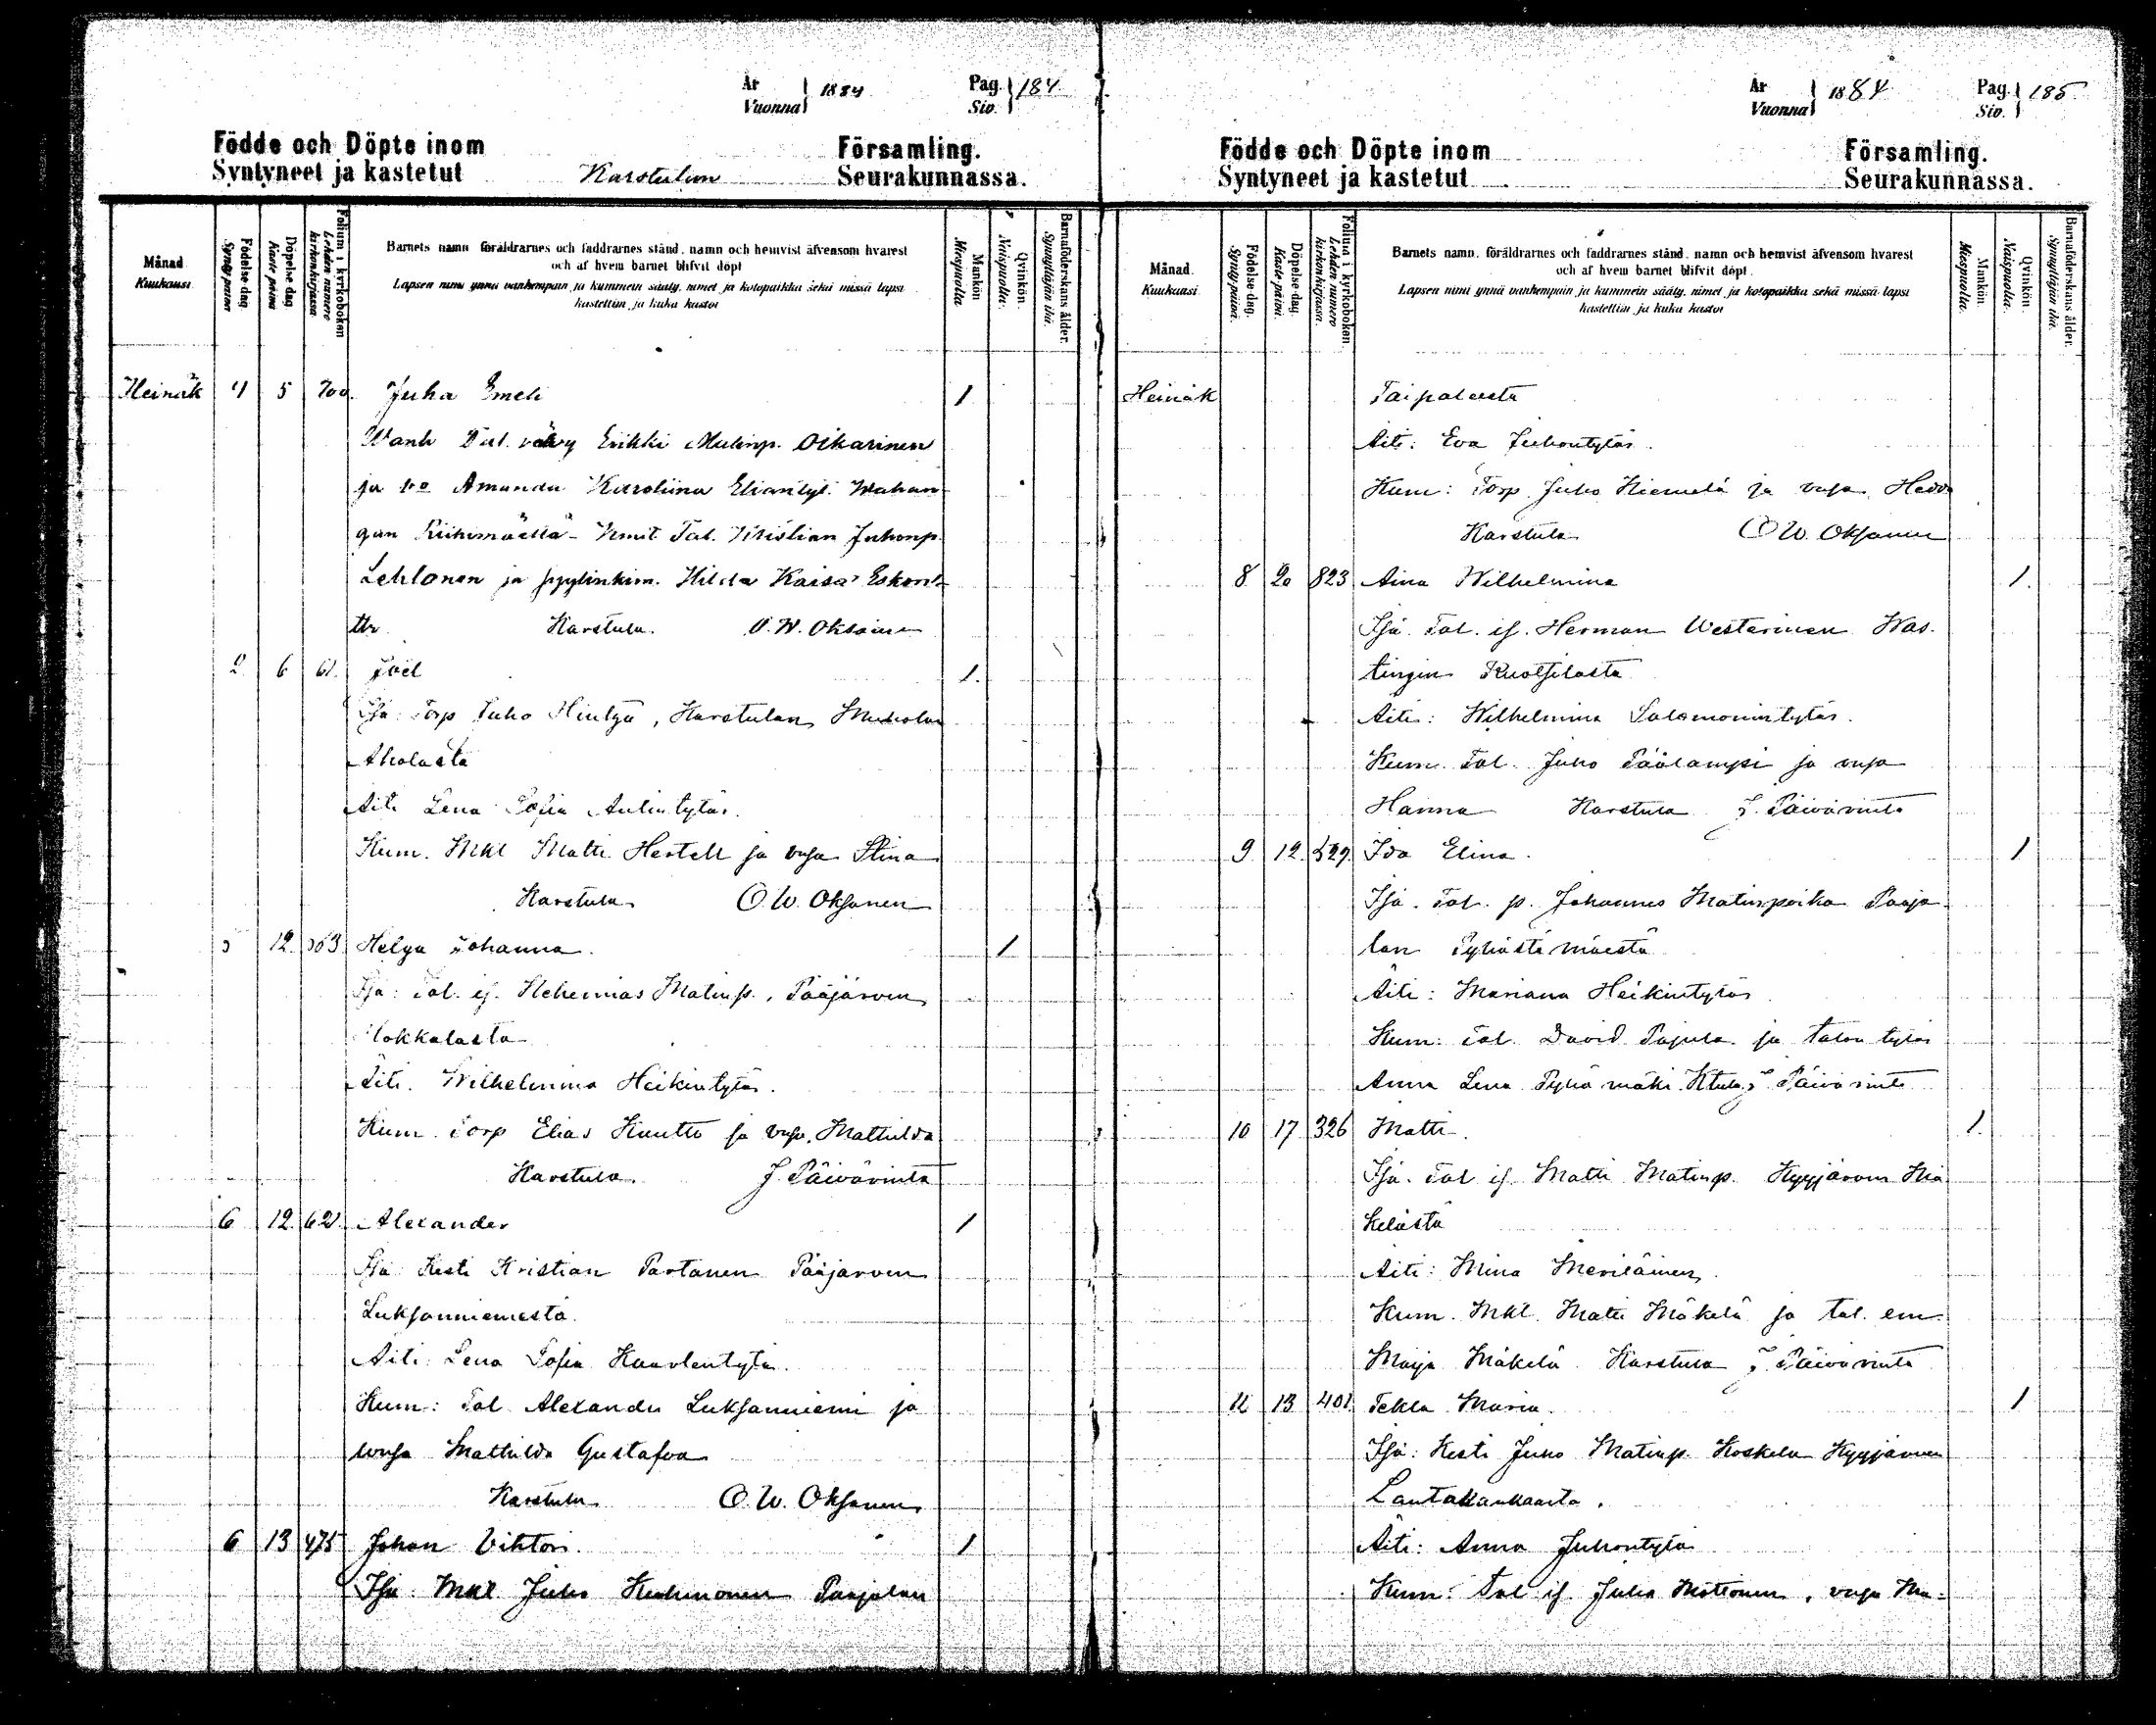 År Vuonna 1884 Pag. Siv. 184
Födde och Döpte inom Församling.
Syntyneet ja kastetut Karstulan Seurakunnassa.
Månad Kuukausi
Födelse dag. Synty päivä
Döpelse dag. Kaste päivä
Folium i kyrkoboken Lehden numero kirkonkirjassa
Barnets namn föräldrarnes och faddrarnes stånd, namn och hemvist äfvensom hvarest
och af hvem barnet blifvit döpt
Lapsen nimi ynnä vanhempain ja kummein sääty, nimet ja kotopaikka sekä missä lapsi
kastettiin ja kuka kastoi
Mankön Miespuolia.
Qvinkön. Naispuolia.
Barnaföderskans ålder. Synnyttäjän ikä.
Heinäk 4 5 700. Juha Emeli 1
Wanh Tal. vävy Erikki Matinp. Oikarinen
ja vo Amanda Karoliina Eliantyt. Wahan
gan Riihimäellä - Kmit Tal. Kristian Juhonp.
Lehtonen ja Hilda Kaisa Eskont
ttr Karstula. O. W. Oksanen
2 6 61. Joel 1.
Isä: Torp Juho Hintza, Karstulan
Aholasta
Äiti Lena Sofia Antintytär.
Kum. Mkl Matti Hertell ja vmsa Stina
Karstula O. W. Oksanen
12 Helga Johanna. 1
Isä: Tal. is. Nehemias Matinp., Pääjärven
Hokkalasta
Äiti. Wilhelmina Heikintytär.
Kum. Torp Elias Kuutti ja vmsa. Mathilda
Karstula. J. Päivärinta
6 12 621. Alexander 1
Isä: Kesti Kristian Partanen Pääjärven
Luksanniemestä.
Äiti: Lena Sofia Kaarlentytär.
Kum: Tal Alexander Luksanniemi ja
vmsa Mathilda Gustafva
Karstula O. W. Oksanen
6 13 475 Johan Viktor. 1
Isä: Mkl Juho Kinnunen Paajalan
År Vuonna 1884 Pag. Siv. 185
Födde och Döpte inom Församling.
Syntyneet ja kastetut Seurakunnassa.
Månad. Kuukausi
Födelse dag. Synty-päivä.
Döpelse dag. Kaste päivä.
Folium i kyrkoboken Lehden numero kirkonkirjassa.
Barnets namn. föräldrarnes och faddrarnes stånd. namn och hemvist äfvensom hvarest
och af hvem barnet blifvit döpt.
Lapsen nimi ynnä vanhempain ja kummein sääty, nimet ja kotopaikka sekä missä lapsi
kastettiin ja kuka kastoi
Mankön. Miespuolia.
Qvinkön. Naispuolia.
Barnaföderskans ålder. Synnyttäjän ikä.
Heinäk Taipaleesta
Äiti: Eva Juhontytär.
Kum: Torp Juho Niemelä ja vmsa Hedda
Karstula O. W. Oksanen
8 20 823 Aina Wilhelmina 1.
Isä. Tal. is. Herman Westerinen Was-
tingin Kuotsilasta
Äiti: Wilhelmina Salomonintytär.
Kum. Tal. Juho Päälampi ja vmsa
Hanna Karstula J. Päivärinta
9 12 529. Ida Elina. 1
Isä. Tal. p. Johannes Matinpoika Paaja-
lan Pyhästämäestä
Äiti: Mariana Heikintytär
Kum: Tal. David Pajula ja talon tytär
Anna Lena Pyhämäki Ktula J. Päivärinta
10 17 326 Matti. 1.
Isä. Tal is. Matti Matinp. Kyyjärven Mä
kelästä
Äiti: Mina Meriläinen.
Kum. Mkl. Matti Mäkelä ja tal. em
Maija Mäkelä Karstula J. Päivärinta
11 13 401. Tekla Maria. 1
Isä: Kesti Juho Matinp. Koskela Kyyjärven
Lantakankaasta.
Äiti: Anna Juhontytär
Kum: Tal is. Juho Mottonen, vmsa Ma-